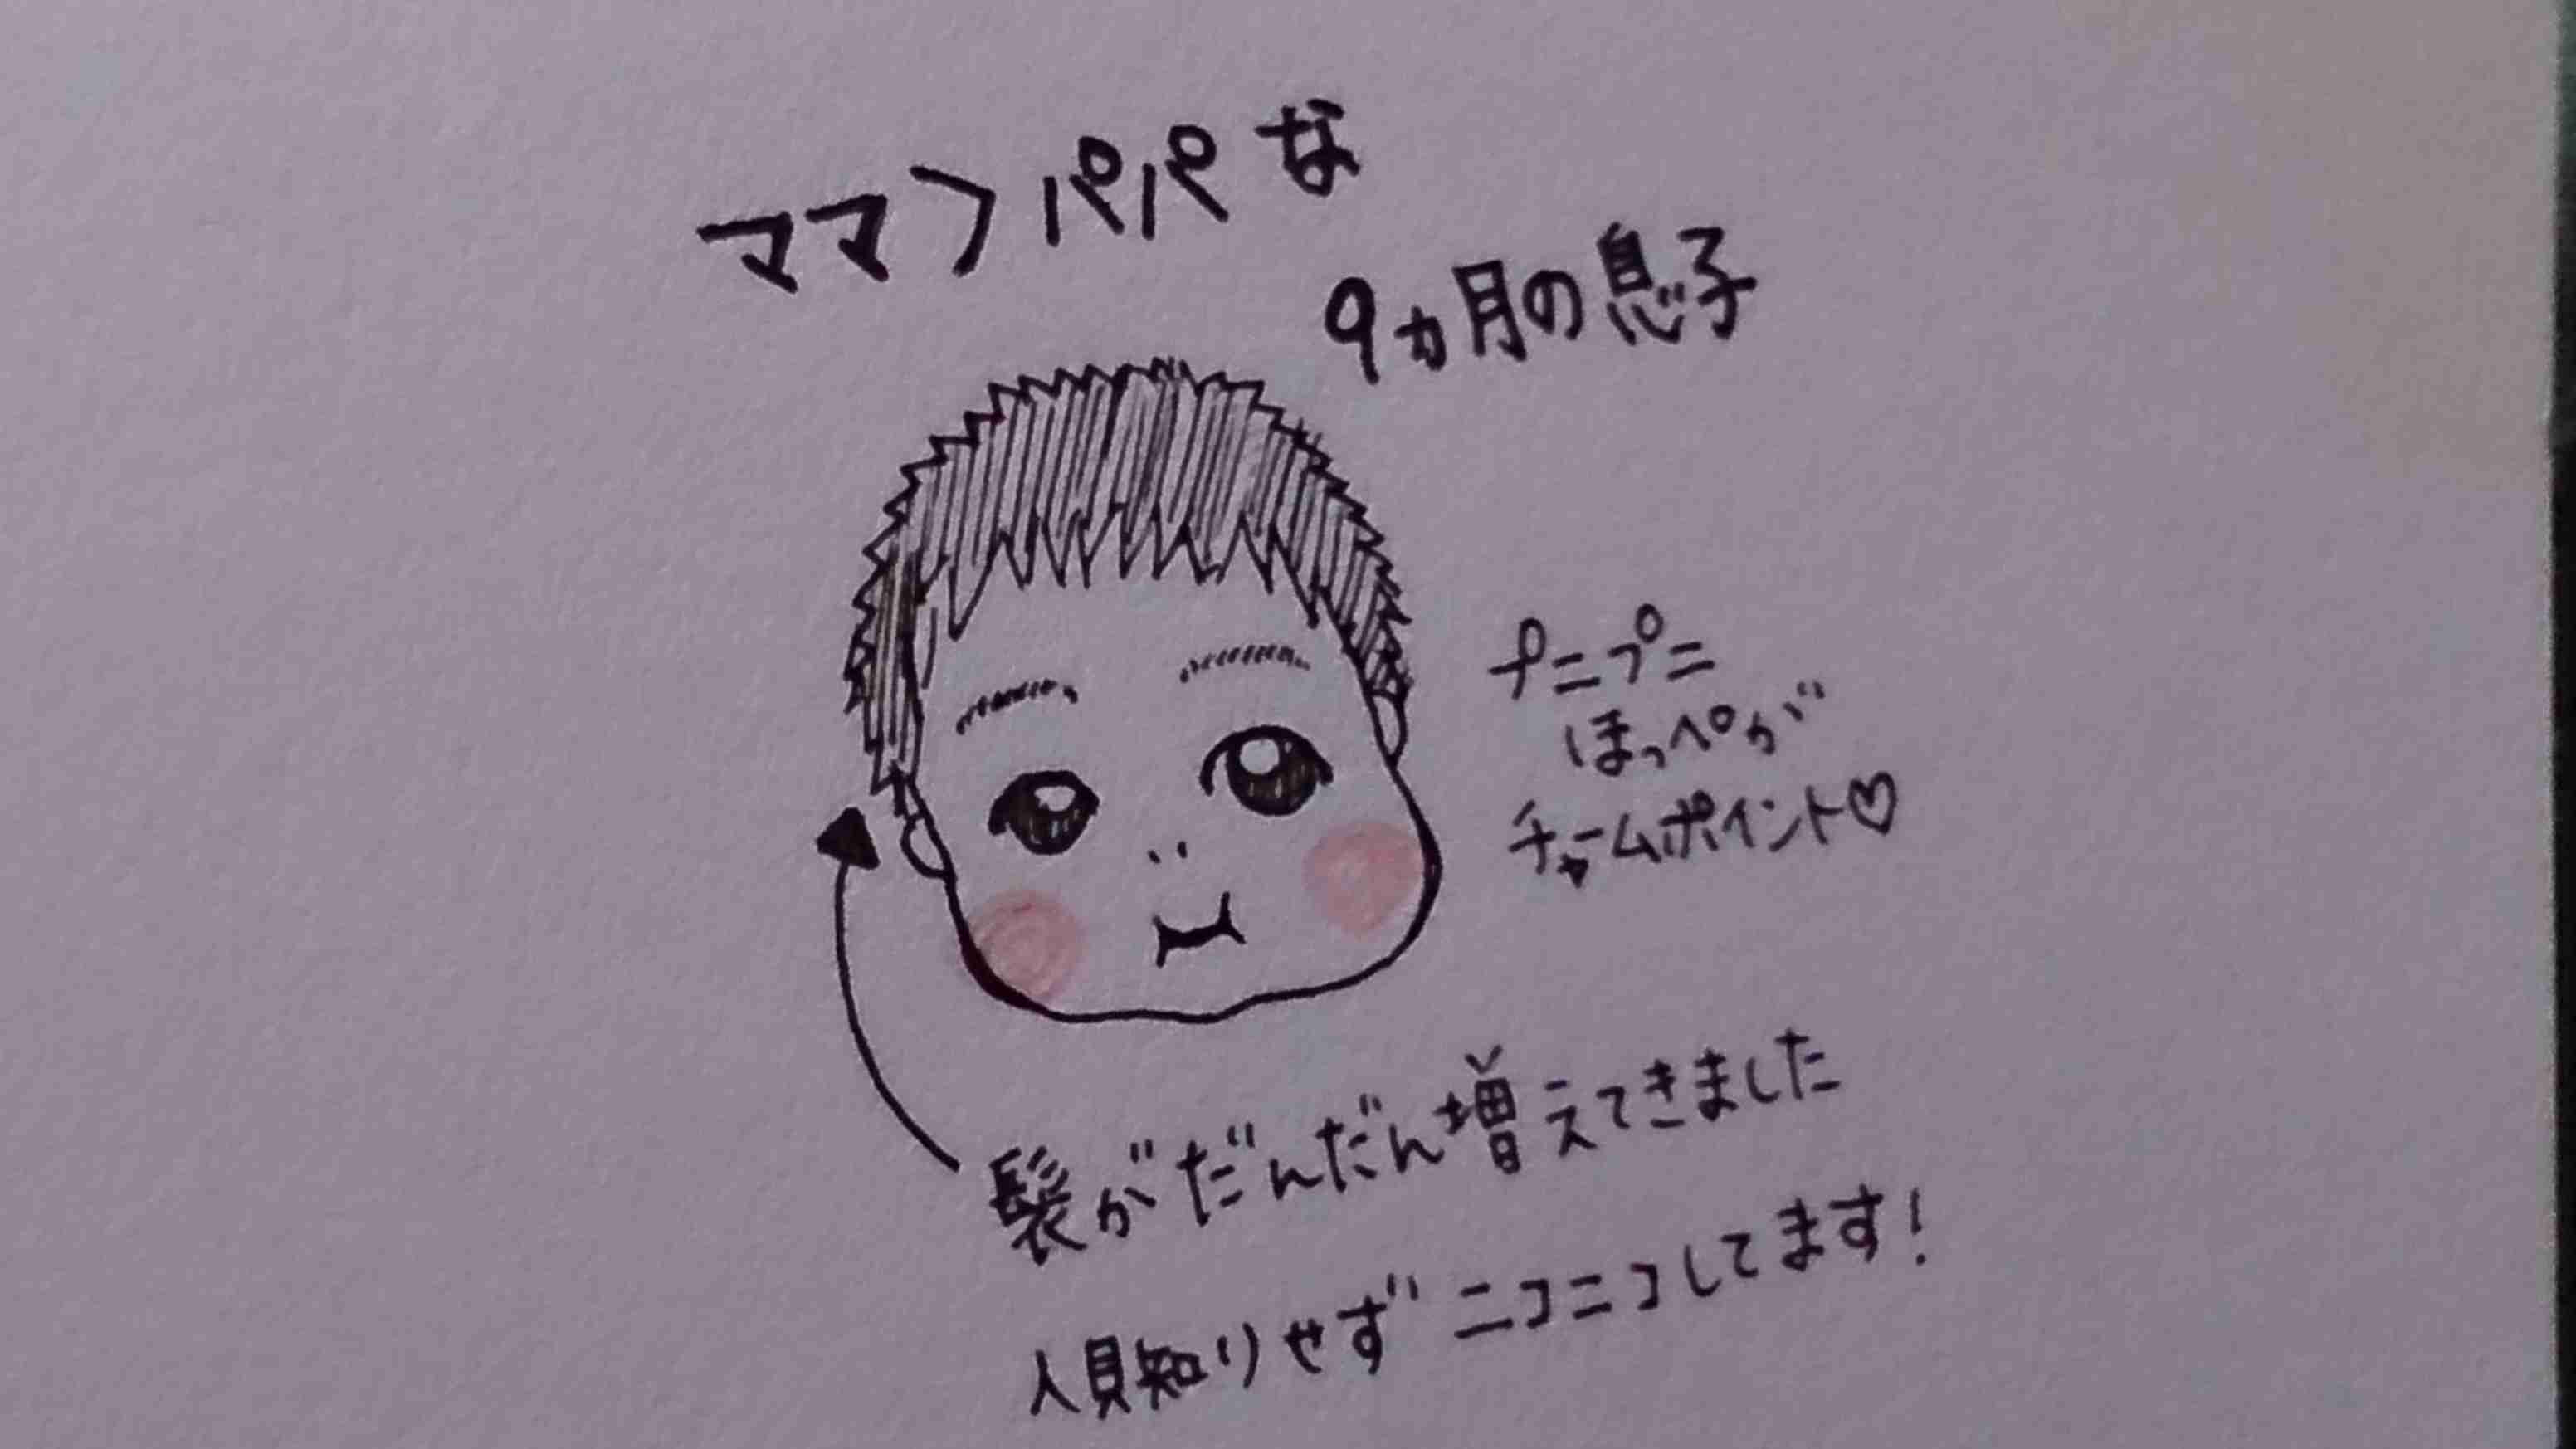 ママ>パパな
9ヵ月の息子
プニプニ
ほっぺが
チャームポイント♡
髪がだんだん増えてきました
人見知りせずニコニコしてます!